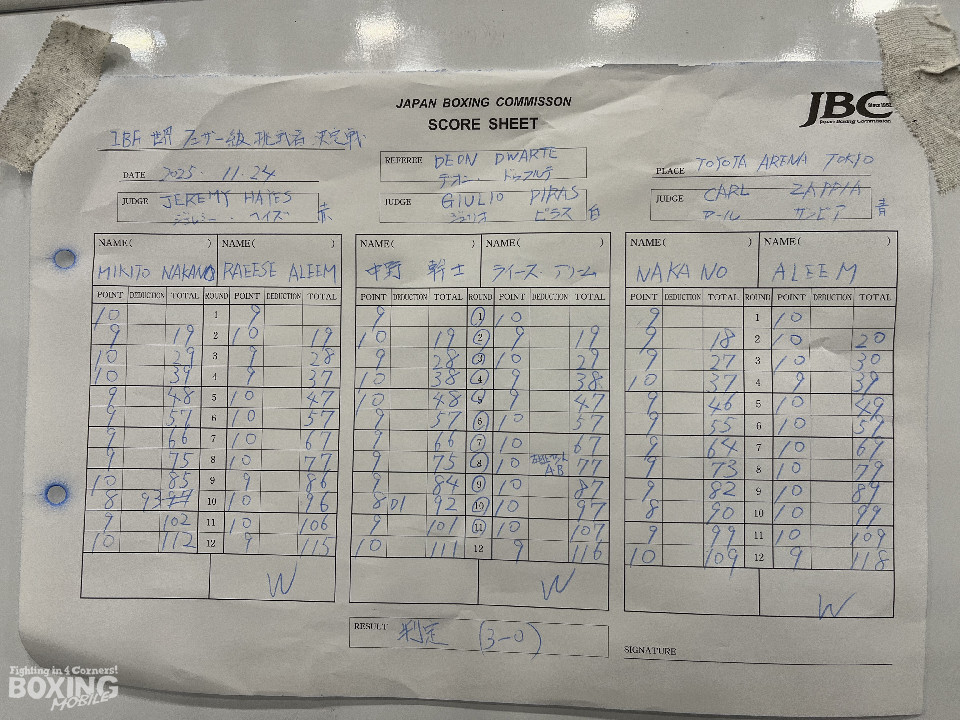 JBC Since 1952
Japan Boxing Commission
JAPAN BOXING COMMISSON
SCORE SHEET
IBF 世界フェザー級 挑戦者 決定戦
DATE 2025. 11. 24
REFEREE DEON DWARTE
デオン・ドゥアルテ
PLACE TOYOTA ARENA TOKYO
JUDGE JEREMY HAYES
ジェレミー・ヘイズ 赤
JUDGE GIULIO PIRAS
ジュリオ ピラス 白
JUDGE CARL ZAPPIA
カール ザッピア 青
NAME( ) NAME( ) NAME( ) NAME( ) NAME( ) NAME( )
MIKITO NAKANO RAEESE ALEEM 中野 幹士 ライース・アリーム NAKANO ALEEM
POINT DEDUCTION TOTAL ROUND POINT DEDUCTION TOTAL POINT DEDUCTION TOTAL ROUND POINT DEDUCTION TOTAL POINT DEDUCTION TOTAL ROUND POINT DEDUCTION TOTAL
10 1 9 9 1 10 9 1 10
9 19 2 10 19 10 19 2 9 19 9 18 2 10 20
10 29 3 9 28 9 28 3 10 29 9 27 3 10 30
10 39 4 9 37 10 38 4 9 38 10 37 4 9 39
9 48 5 10 47 10 48 5 9 47 9 46 5 10 49
9 57 6 10 57 9 57 6 10 57 9 55 6 10 59
9 66 7 10 67 9 66 7 10 67 9 64 7 10 69
9 75 8 10 77 9 75 8 10 AB 77 9 73 8 10 79
10 85 9 9 86 9 84 9 10 87 9 82 9 10 89
8 93 10 10 96 8 D1 92 10 10 97 8 90 10 10 99
9 102 11 10 106 9 101 11 10 107 9 99 11 10 109
10 112 12 9 115 10 111 12 9 116 10 109 12 9 118
W W W
RESULT 判定 (3-0)
SIGNATURE
Fighting in 4 Corners!
BOXING
MOBILE